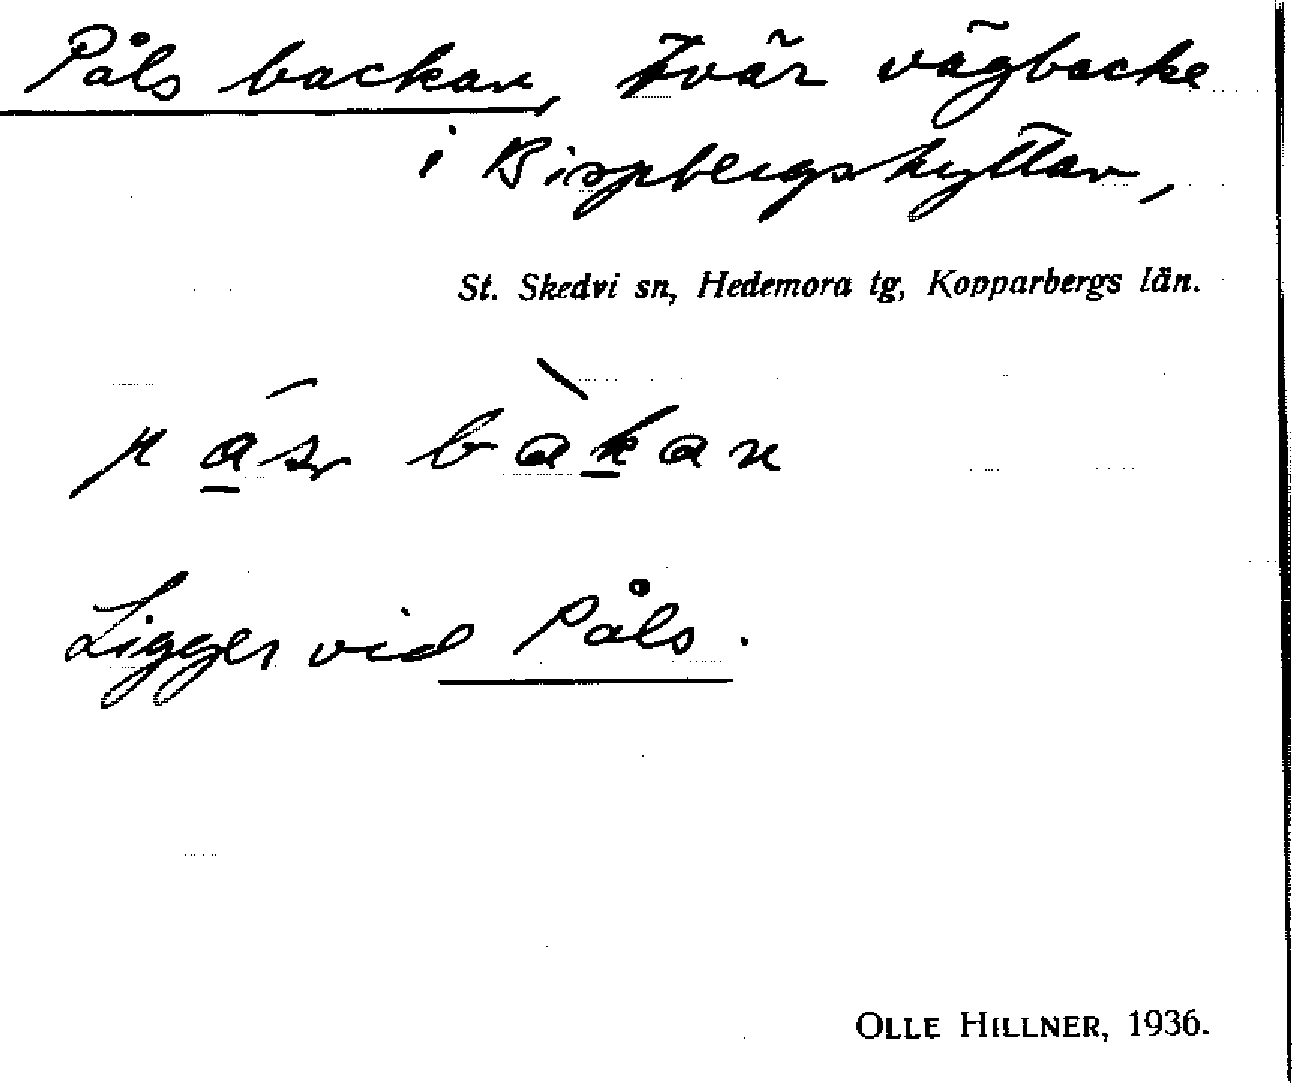 Påls backan, tvär vägbacke
i Bispbergshyttan,
St. Skedvi sn, Hedemora tg, Kopparbergs län.
Ligger vid Påls.
OLLE HILLNER, 1936.